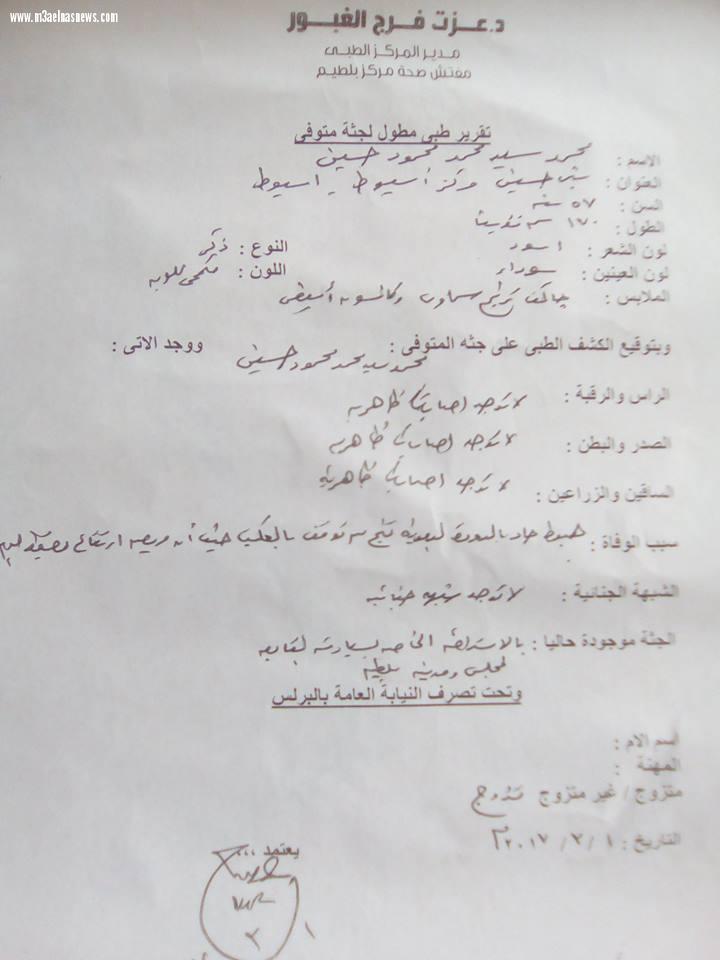 www.m3aelnasnews.com
د.عزت فرج الغبور
مدير المركز الطبى
مفتش صحة مركز بلطيم
تقرير طبى مطول لجثة متوفى
الاسم : محمد سيد محمد محمود حسين
العنوان : مركز أسيوط - اسيوط
السن : ٥٧ سنه
الطول : ١٧٠ سم تقريباً
لون الشعر : اسود النوع : ذكر
لون العينين : سوداء اللون : قمحى
الملابس : جاكت سماوى
وبتوقيع الكشف الطبى على جثه المتوفى : محمد سيد محمد محمود حسين ووجد الاتى :
الراس والرقبة : لا توجد اصابات ظاهريه
الصدر والبطن : لا توجد اصابات ظاهريه
الساقين والزراعين : لا توجد اصابات ظاهرية
سبب الوفاة : هبوط حاد بالدورة الدموية نتج عن توقف بالقلب حيث أنه مريض ارتفاع
الشبهة الجنائية : لا توجد شبهه جنائيه
الجثة موجودة حاليا : بالاستراحه الخاصه
لمجلس ومدينه بلطيم
وتحت تصرف النيابة العامة بالبرلس
اسم الام :
المهنة :
متزوج / غير متزوج متزوج
التاريخ : ١ / ٣ / ٢٠١٧ م
يعتمد ...